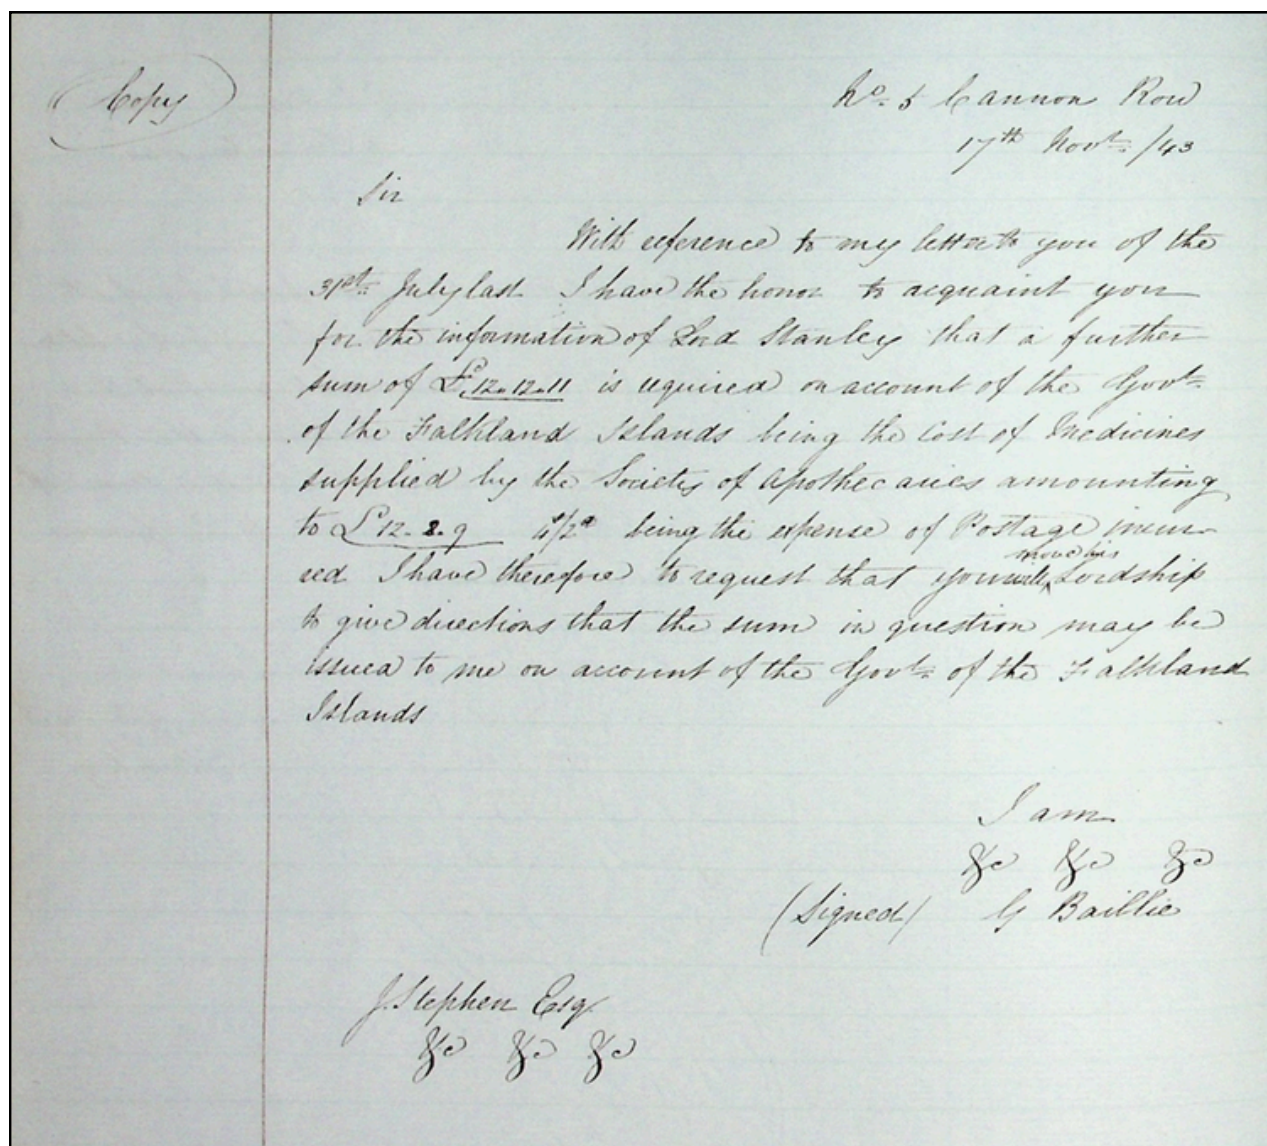 Copy
No. 5 Cannon Row
17th Novr. /43
Sir
With reference to my letter to you of the
31st. July last I have the honor to acquaint you
for the information of Lord Stanley that a further
sum of £12.12.11 is required on account of the Govt.
of the Falkland Islands being the Cost of Medicines
supplied by the Society of Apothecaries amounting
to £12.8.9 4s/2d being the expense of Postage incur-
red I have therefore to request that you will move his Lordship
to give directions that the sum in question may be
issued to me on account of the Govt. of the Falkland
Islands
I am
&c &c &c
(Signed) G Baillie
J. Stephen Esq.
&c &c &c